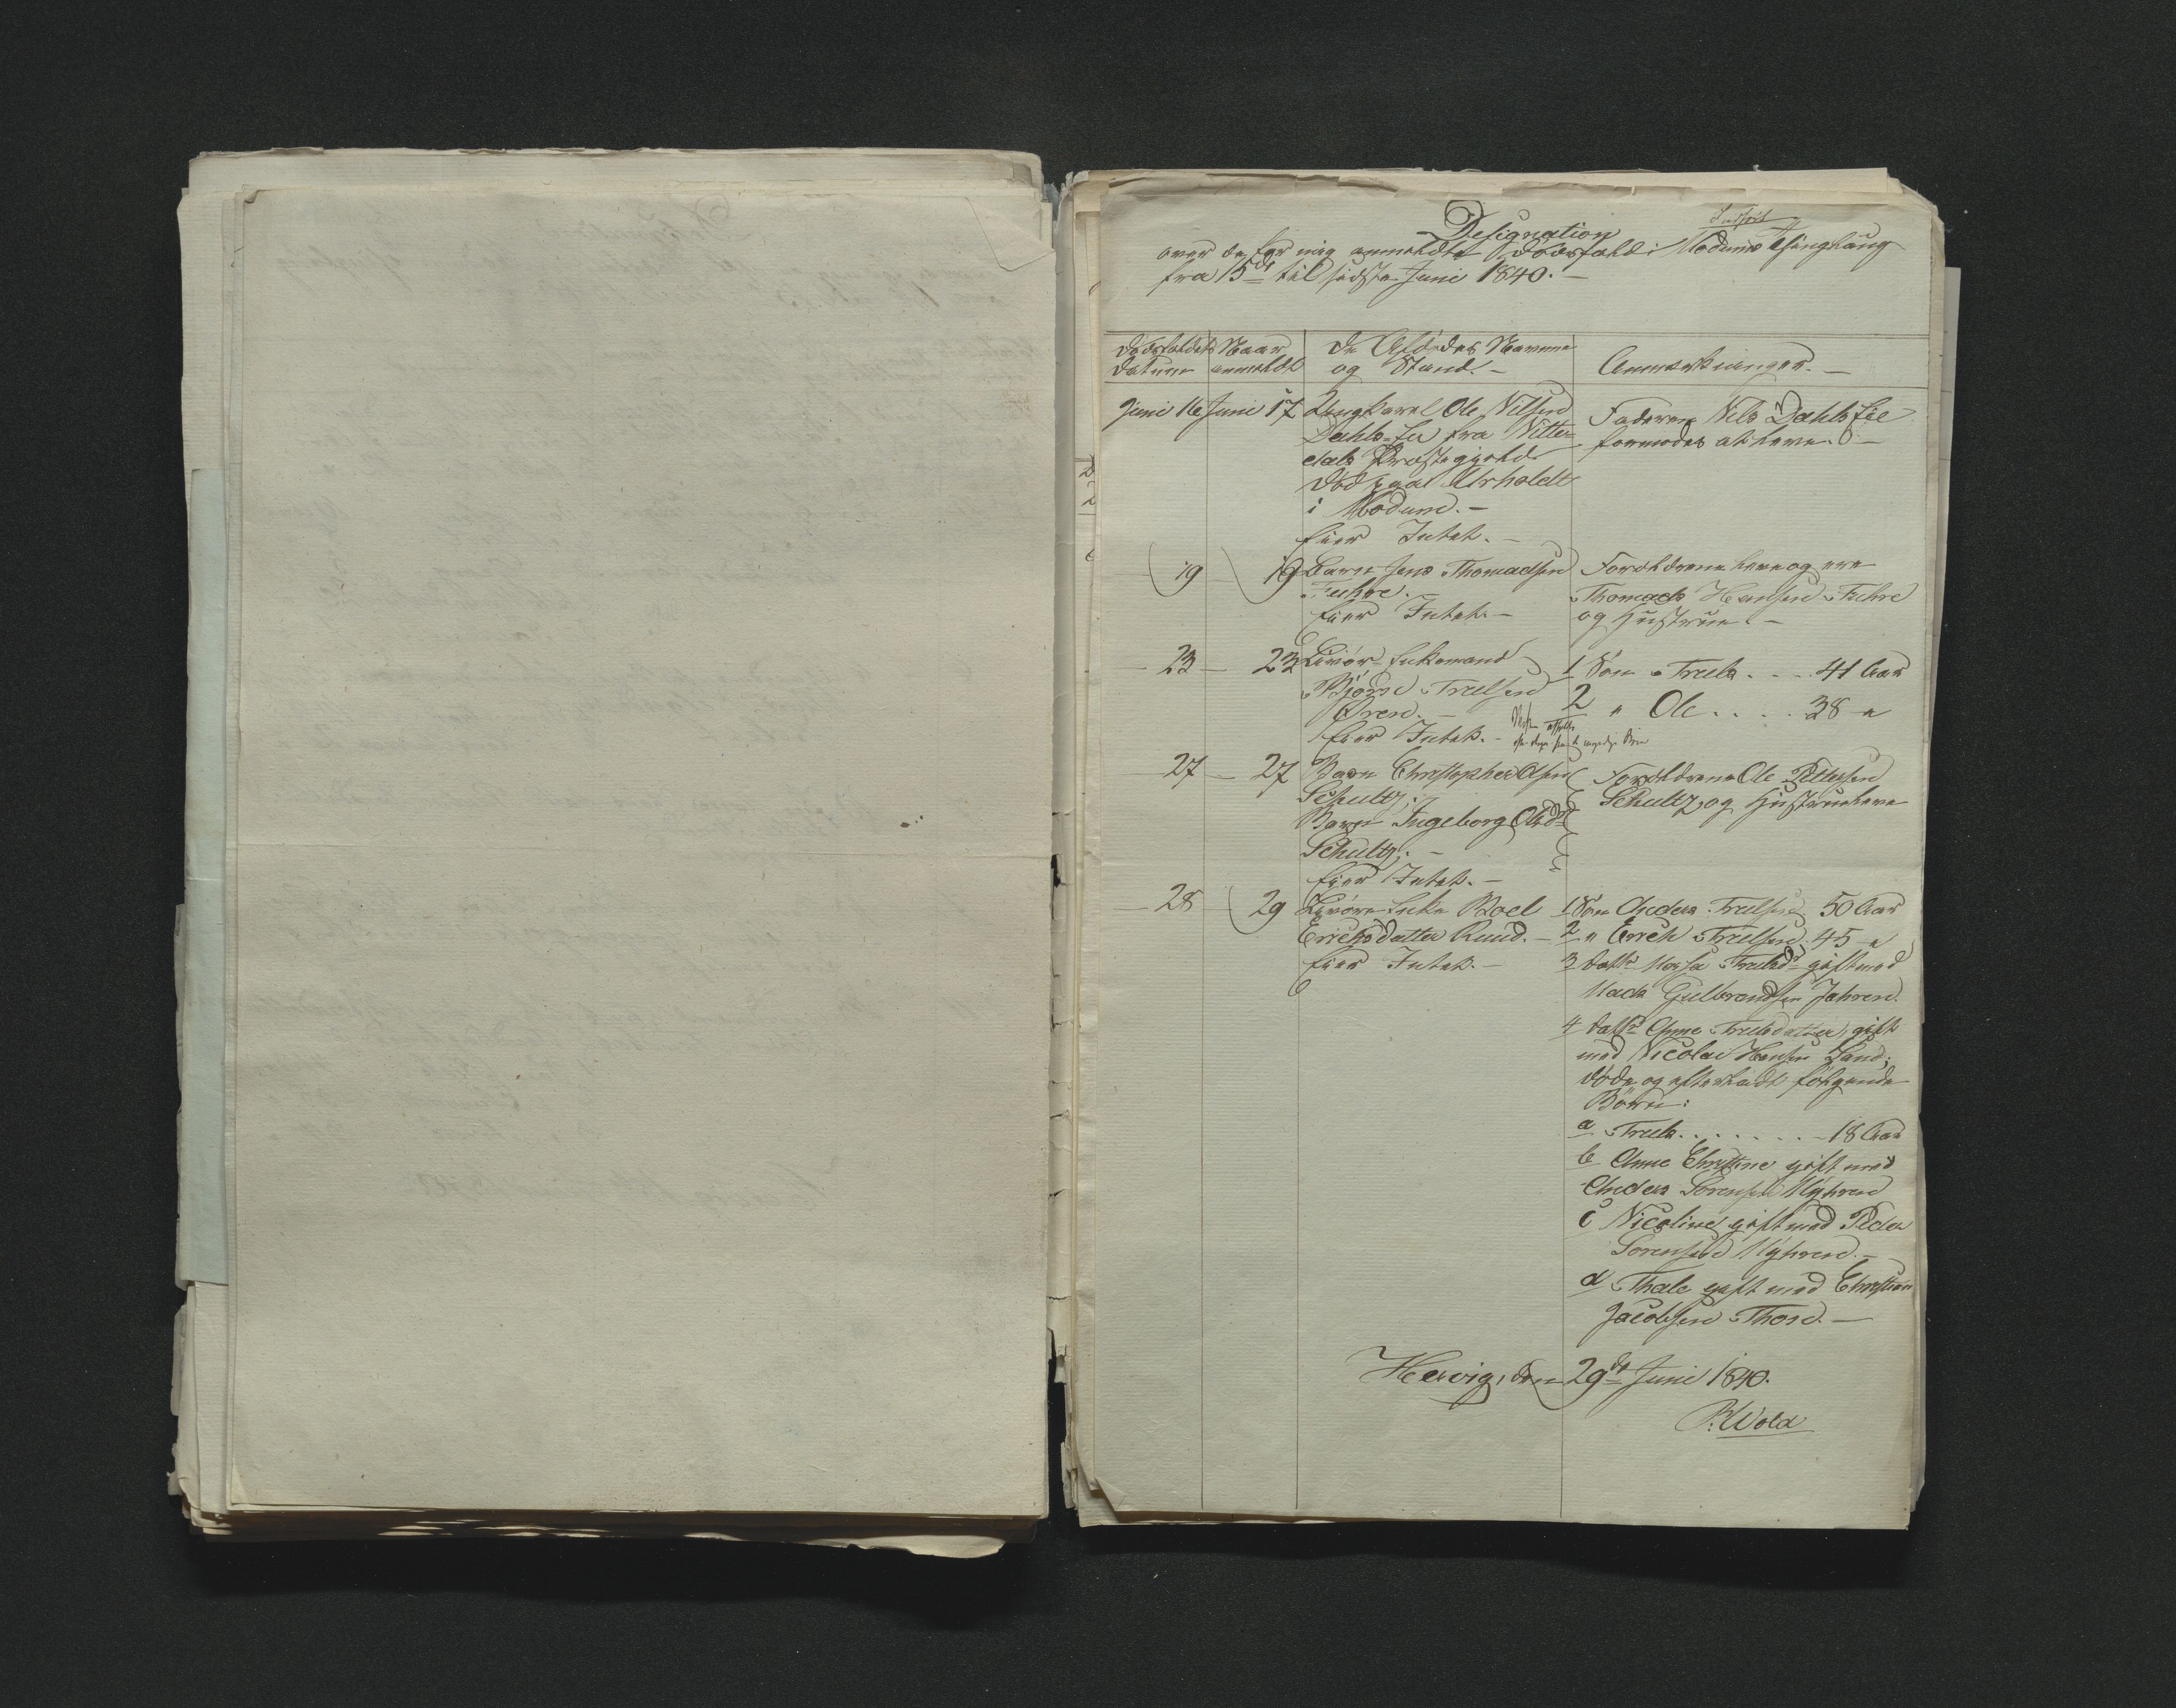 Designation
over de for mig anmeldte Dödsfald i Modums Thinglaug
fra 15de til sidste Juni 1840. —
Dödsfaldets Datum
Naar anmeldt
De Afdödes Navne og Stand. —
Anmærkninger. —
Juni 16 Juni 17 Ungkarl Ole Nilsen
Dahls-Eie fra Nitte-
dals Præstegjeld
död paa
i Modum. —
Eier Intet. —
Faderen Nils Dahls Eie
formodes at leve. —
19 19 Barn Jens Thomassen
Fuhre. —
Eier Intet. —
Forældrene leve og ere
Thomas Hansen Fuhre
og Hustrue. —
— 23 — 23 Livör-Enkemand
Björn Truelsen
Ören. —
Eier Intet. —
1 Sön Truls . . . . 41 Aar
2 " Ole . . . . 38 "
27 — 27 Barn Christopher Olsen
Schultz;
Barn Ingeborg Olsdr
Schultz; —
Eier Intet. —
Forældrene Ole Pettersen
Schultz og Hustrue leve
— 28 — 29 Livöre-Enke Boel
Erichsdatter Ruud. —
Eier Intet. —
1 Sön Anders Truelsen 50 Aar
2 " Erich Truelsen 45 "
3 Dattr Truelsdr gift med
Mads Gulbrandsen Jahren.
4 Dattr Anne Truelsdatter, gift
med Nicolai Hansen Sand;
döde og efterladt fölgende
Börn:
a Truls . . . . . . . 18 Aar
b Anne Christine gift med
Anders Sörensen Myhren
c Nicoline gift med Peder
Sörensen Myhren. —
d Thale gift med Christian
Jacobsen Thon. —
Hervig, den 29de Juni 1840.
P. Wold